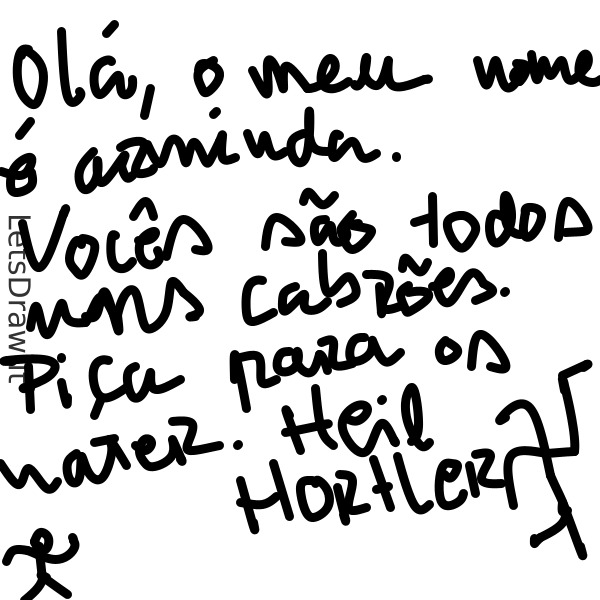 Olá, o meu nome
é arminda.
Vocês são todos
uns cabrões.
Piça para os
mater. Heil
Hortler
LetsDrawIt